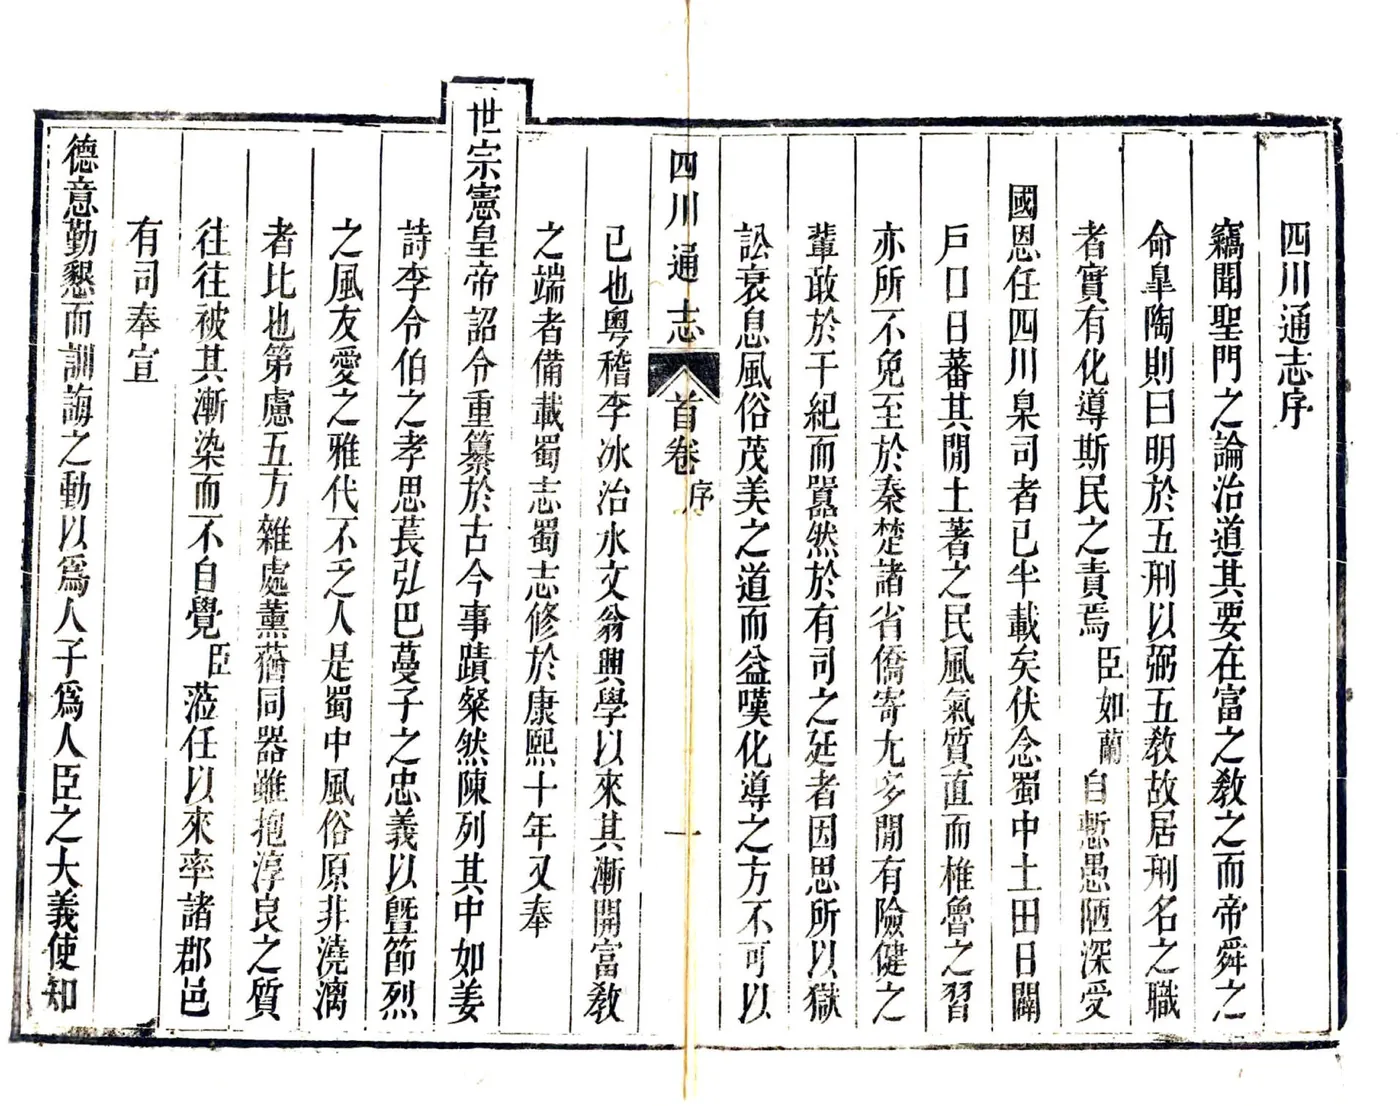 四川通志序
竊聞聖門之論治道其要在富之教之而帝舜之
命臯陶則曰明於五刑以弼五教故居刑名之職
者實有化導斯民之責焉臣如蘭自慙愚陋深受
國恩任四川臬司者已半載矣伏念蜀中土田日闢
戸口日蕃其閒土著之民風氣質直而椎魯之習
亦所不免至於秦楚諸省僑寄尤多閒有險健之
輩敢於干紀而嚚然於有司之廷者因思所以獄
訟衰息風俗茂美之道而益嘆化導之方不可以
四川通志 首卷 序 一
已也粵稽李冰治水文翁興學以來其漸開富教
之端者備載蜀志蜀志修於康熙十年又奉
世宗憲皇帝詔令重纂於古今事蹟粲然陳列其中如姜
詩李令伯之孝思萇弘巴蔓子之忠義以曁節烈
之風友愛之雅代不乏人是蜀中風俗原非澆漓
者比也第慮五方雜處薰蕕同器雖抱淳良之質
往往被其漸染而不自覺臣蒞任以來率諸郡邑
有司奉宣
德意勤懇而訓誨之動以爲人子爲人臣之大義使知